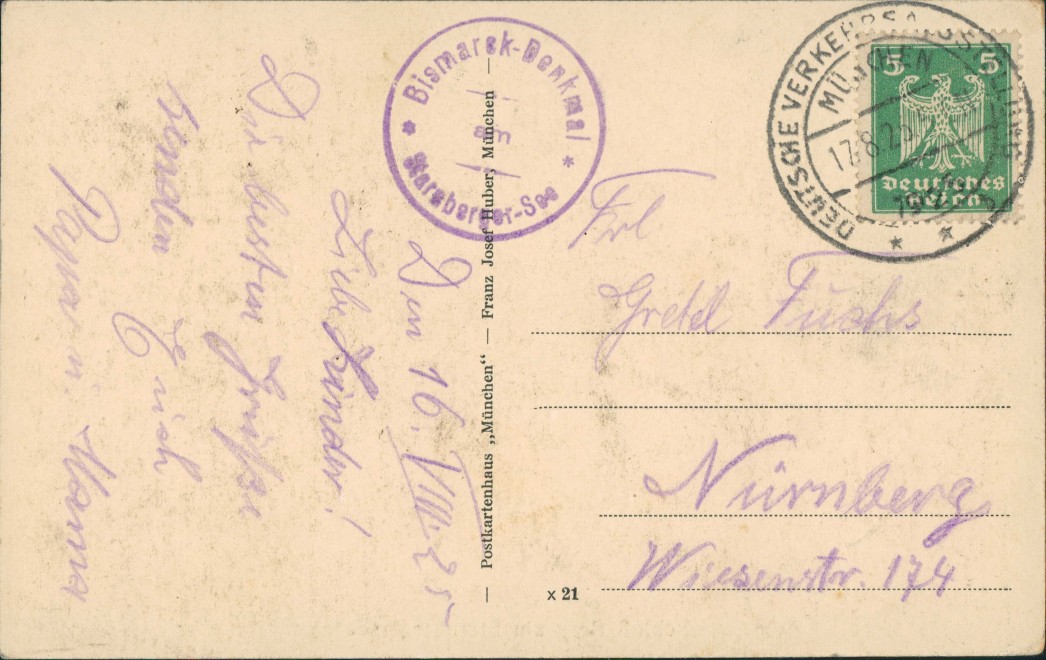 Den 16. VIII. 25
Liebe Kinder!
Die besten Grüsse
senden Euch
Papa u. Mama
Bismarck-Denkmal
am
* Starnberger-See *
Postkartenhaus „München“ — Franz Josef Huber, München
x 21
DEUTSCHE VERKEHRSAUSSTELLUNG
MÜNCHEN
17.8.25
* *
5 5
Deutsches
Reich
Frl
Gretel Fuchs
Nürnberg
Wiesenstr. 174